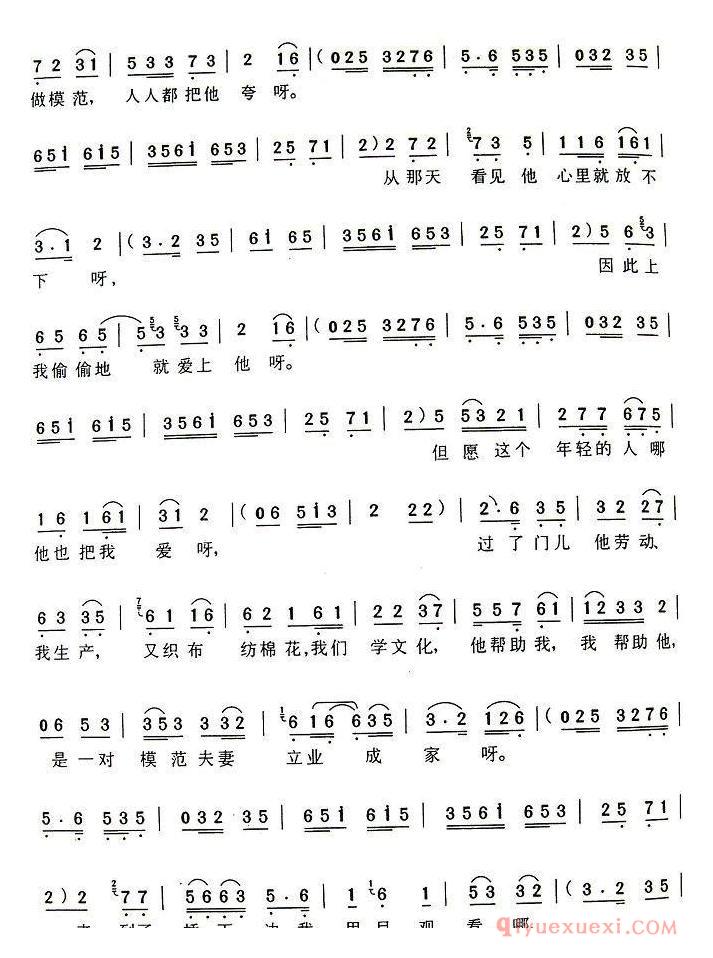 7 2 31 | 5 3 3 7 3 | 2 16 | (025 3276 | 5·6 535 | 032 35 |
做模范， 人人都把他 夸 呀。
651 615 | 3561 653 | 25 71 | 2) 2 7 2 | 2 7 3 5 | 1 1 6 161 |
从那天 看见他 心里就放不
3·1 2 | (3·2 35 | 61 65 | 3561 653 | 25 71 | 2) 5 6 5 3 |
下 呀， 因此上
6 5 6 5 | 5 5 3 5 3 3 | 2 16 | (025 3276 | 5·6 535 | 032 35 |
我偷偷地 就爱上 他 呀。
651 615 | 3561 653 | 25 71 | 2) 5 5321 | 2 7 7 675 |
但愿这个 年轻的人哪
1 6 1 61 | 31 2 | (06 513 | 2 22) | 2·6 35 | 32 27 |
他也把我 爱呀， 过了门儿他劳动、
6 3 35 | 7 6 1 16 | 62 1 61 | 22 37 | 557 61 | 1233 2 |
我生产， 又织布 纺棉花，我们 学文化， 他帮助我， 我 帮助他，
06 53 | 353 332 | 1 6 16 635 | 3·2 126 | (025 3276 |
是一对 模范夫妻 立业 成 家 呀。
5·6 535 | 032 35 | 651 615 | 3561 653 | 25 71 |
2) 2 2 7 7 | 5663 5·6 | 1 1 6 1 | 53 32 | (032 35 |
看哪
qiyuexuexi.com